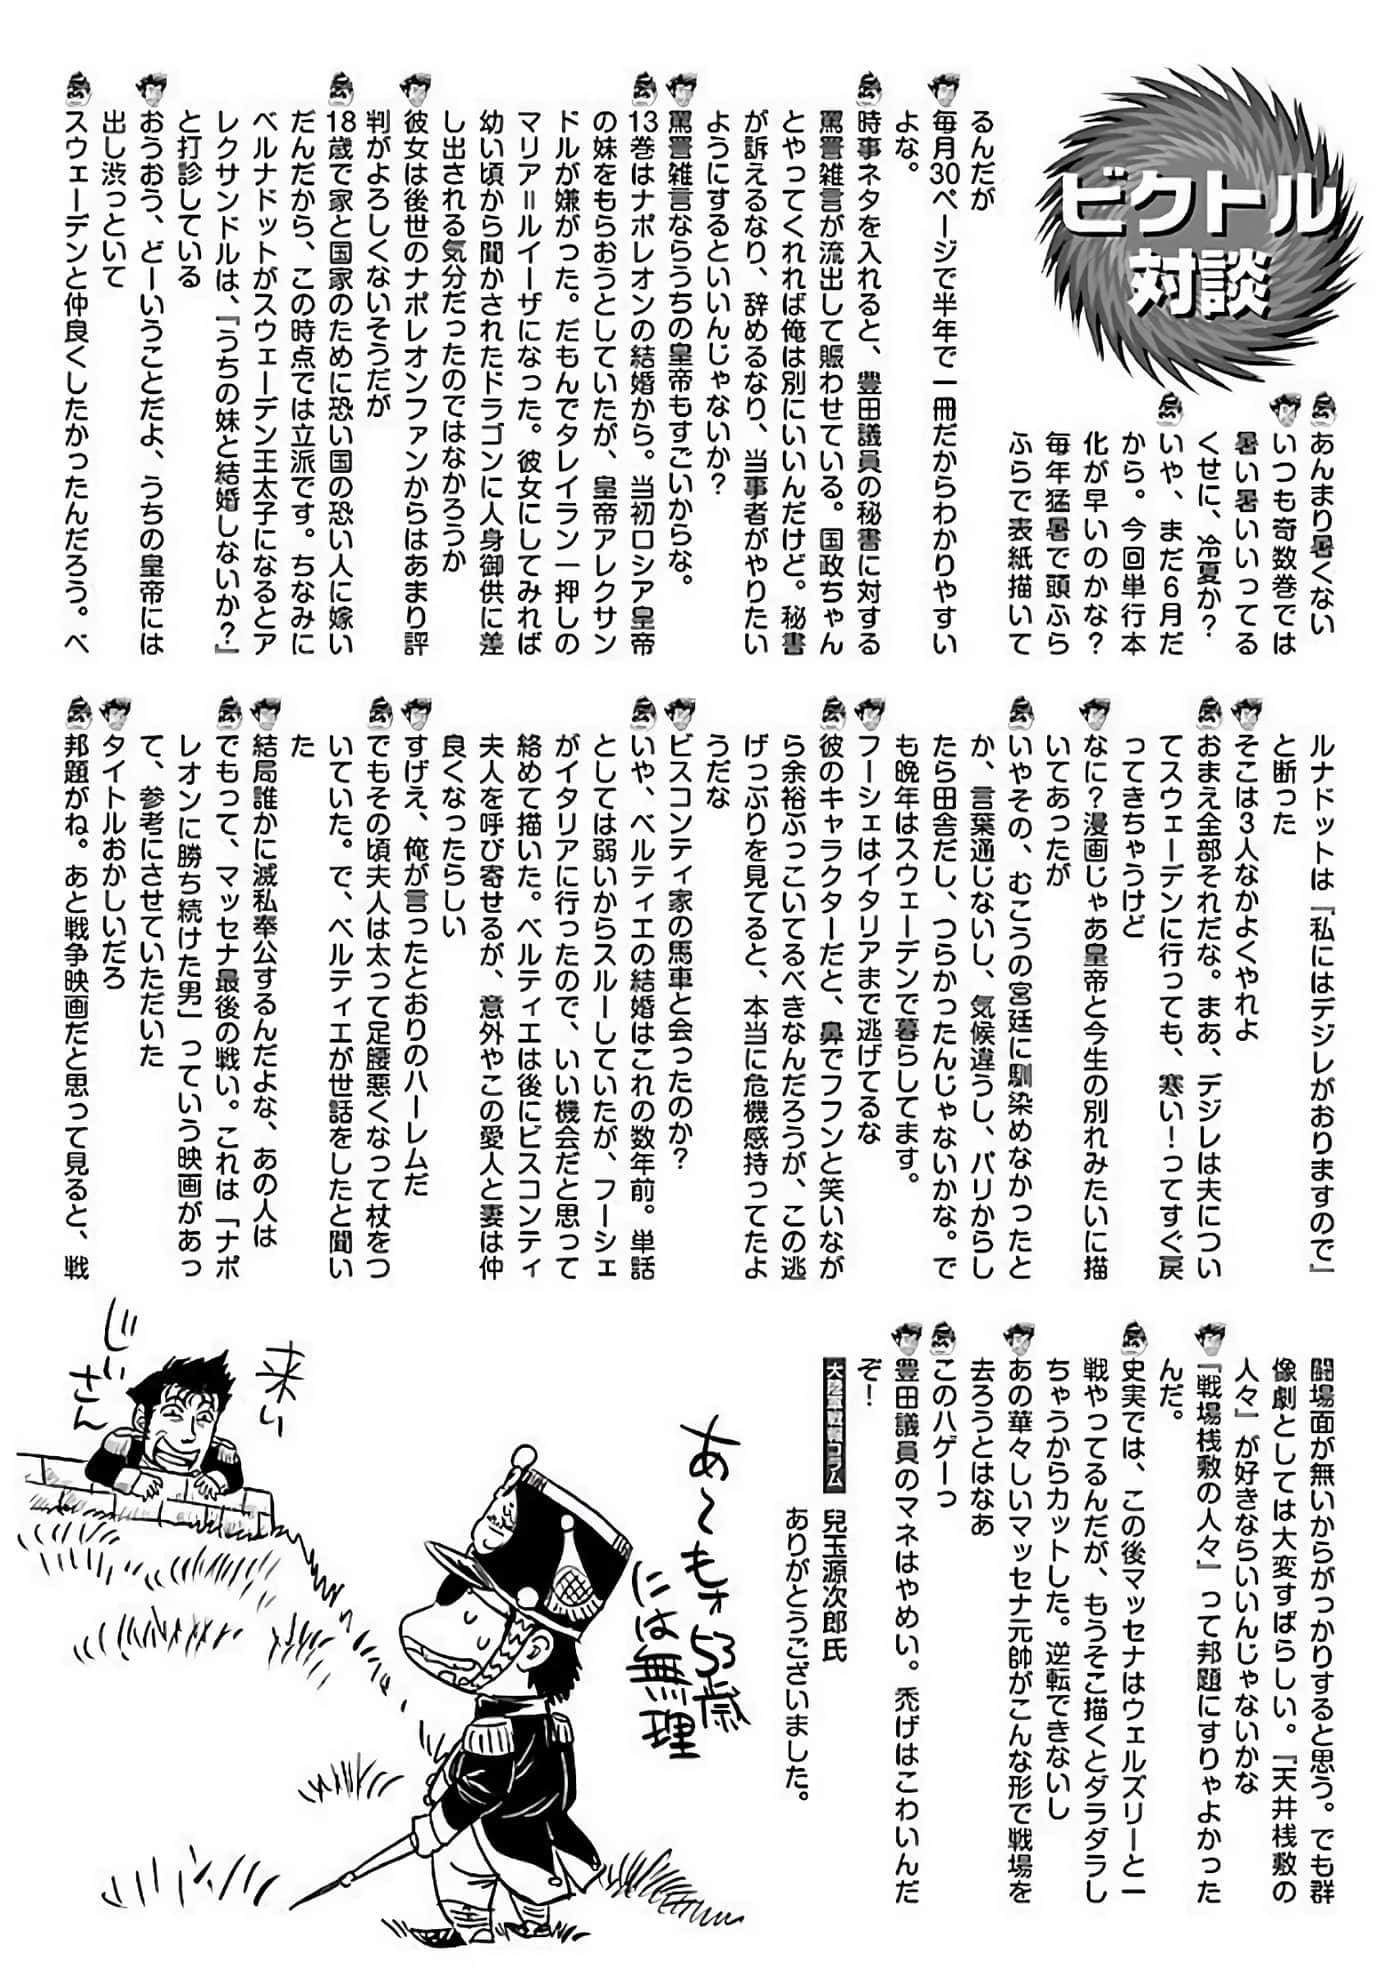 ビクトル
対談
あんまり暑くない
いつも奇数巻では
暑い暑いいってる
くせに、冷夏か？
いや、まだ6月だ
から。今回単行本
化が早いのかな？
毎年猛暑で頭ふら
ふらで表紙描いて
るんだが
毎月30ページで半年で一冊だからわかりやすい
よな。
時事ネタを入れると、豊田議員の秘書に対する
罵詈雑言が流出して賑わせている。国政ちゃん
とやってくれれば俺は別にいいんだけど。秘書
が訴えるなり、辞めるなり、当事者がやりたい
ようにするといいんじゃないか？
罵詈雑言ならうちの皇帝もすごいからな。
13巻はナポレオンの結婚から。当初ロシア皇帝
の妹をもらおうとしていたが、皇帝アレクサン
ドルが嫌がった。だもんでタレイラン一押しの
マリア＝ルイーザになった。彼女にしてみれば
幼い頃から聞かされたドラゴンに人身御供に差
し出される気分だったのではなかろうか
彼女は後世のナポレオンファンからはあまり評
判がよろしくないそうだが
18歳で家と国家のために恐い国の恐い人に嫁い
だんだから、この時点では立派です。ちなみに
ベルナドットがスウェーデン王太子になるとア
レクサンドルは、『うちの妹と結婚しないか？』
と打診している
おうおう、どーいうことだよ、うちの皇帝には
出し渋っといて
スウェーデンと仲良くしたかったんだろう。ベ
ルナドットは『私にはデジレがおりますので』
と断った
そこは3人なかよくやれよ
おまえ全部それだな。まあ、デジレは夫につい
てスウェーデンに行っても、寒い！ってすぐ戻
ってきちゃうけど
なに？漫画じゃあ皇帝と今生の別れみたいに描
いてあったが
いやその、むこうの宮廷に馴染めなかったと
か、言葉通じないし、気候違うし、パリからし
たら田舎だし、つらかったんじゃないかな。で
も晩年はスウェーデンで暮らしてます。
フーシェはイタリアまで逃げてるな
彼のキャラクターだと、鼻でフフンと笑いなが
ら余裕ぶっこいてるべきなんだろうが、この逃
げっぷりを見てると、本当に危機感持ってたよ
うだな
ビスコンティ家の馬車と会ったのか？
いや、ベルティエの結婚はこれの数年前。単話
としては弱いからスルーしていたが、フーシェ
がイタリアに行ったので、いい機会だと思って
絡めて描いた。ベルティエは後にビスコンティ
夫人を呼び寄せるが、意外やこの愛人と妻は仲
良くなったらしい
すげえ、俺が言ったとおりのハーレムだ
でもその頃夫人は太って足腰悪くなって杖をつ
いていた。で、ベルティエが世話をしたと聞い
た
結局誰かに滅私奉公するんだよな、あの人は
でもって、マッセナ最後の戦い。これは「ナポ
レオンに勝ち続けた男」っていう映画があっ
て、参考にさせていただいた
タイトルおかしいだろ
邦題がね。あと戦争映画だと思って見ると、戦
闘場面が無いからがっかりすると思う。でも群
像劇としては大変すばらしい。『天井桟敷の
人々』が好きならいいんじゃないかな
『戦場桟敷の人々』って邦題にすりゃよかった
んだ。
史実では、この後マッセナはウェルズリーと一
戦やってるんだが、もうそこ描くとダラダラし
ちゃうからカットした。逆転できないし
あの華々しいマッセナ元帥がこんな形で戦場を
去ろうとはなあ
このハゲーっ
豊田議員のマネはやめい。禿げはこわいんだ
ぞ！
大陸軍戦報コラム
兒玉源次郎氏
ありがとうございました。
あ〜もォ53歳
には無理
来い
じいさん